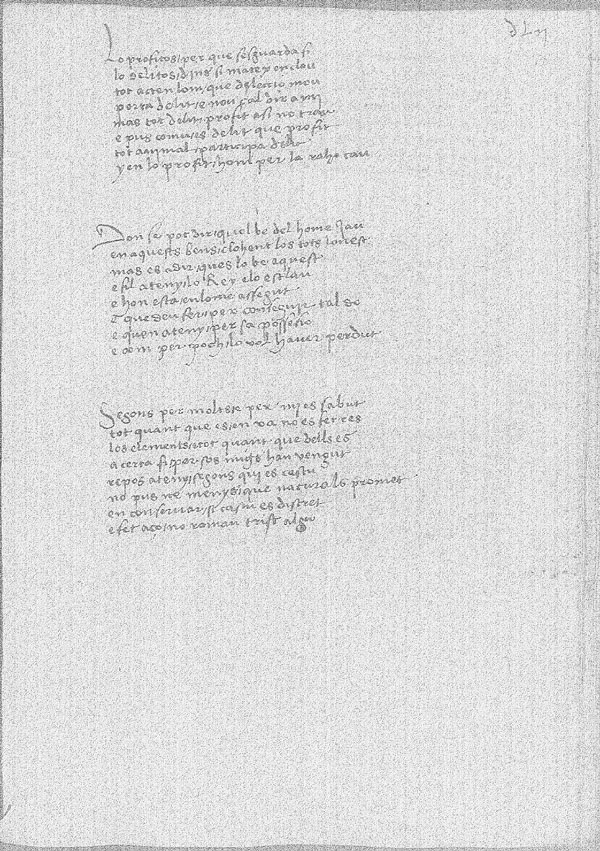 dLii
Lo profitos, per que sesguarda si
lo delitos, dins si mateyx enclou
tot acten lom, que delectacio mou
porta delit, e nou cal dir a mi
mas tot delit, profit asi no trau
e pus comu es delit que profit
tot animal, participa delit
y en lo profit, hom per la raho cau
Don se pot dir, quel be del home jau
en aquests bens, clohent los tots lonest
mas es a dir, ques lo be aquest
e fil ateny, lo Rey e lo esclau
e hon esta, en lome assegut
e que deu fer, per conseguir tal do
e quen ateny, per sa possessio
e com per poch, lo vol haver perdut
Segons per molts, e per mi es sabut
tot quant que es, en va no es fet res
los elements, e tot quant que dells es
a certa fi, per sos mijs han vengut
repos ateny, segons qui es cascu
no pus ne menys, que naturals promet
en conservar, si cascu es discret
e fet aço, no roman trist algu